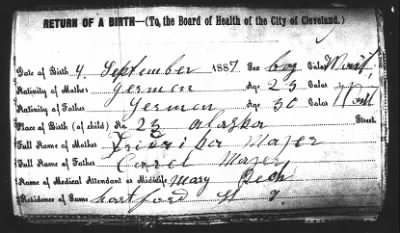 RETURN OF A BIRTH—(To, the Board of Health of the City of Cleveland.)
Date of Birth 4 September 1887 Sex boy Color
Nativity of Mother German Age 25 Color
Nativity of Father German Age 30 Color
Place of Birth (of child) No 23 Alaska Street
Full Name of Mother Majer
Full Name of Father Carel Majer
Name of Medical Attendant or Midwife Mary Pech
Residence of Same Hartford St